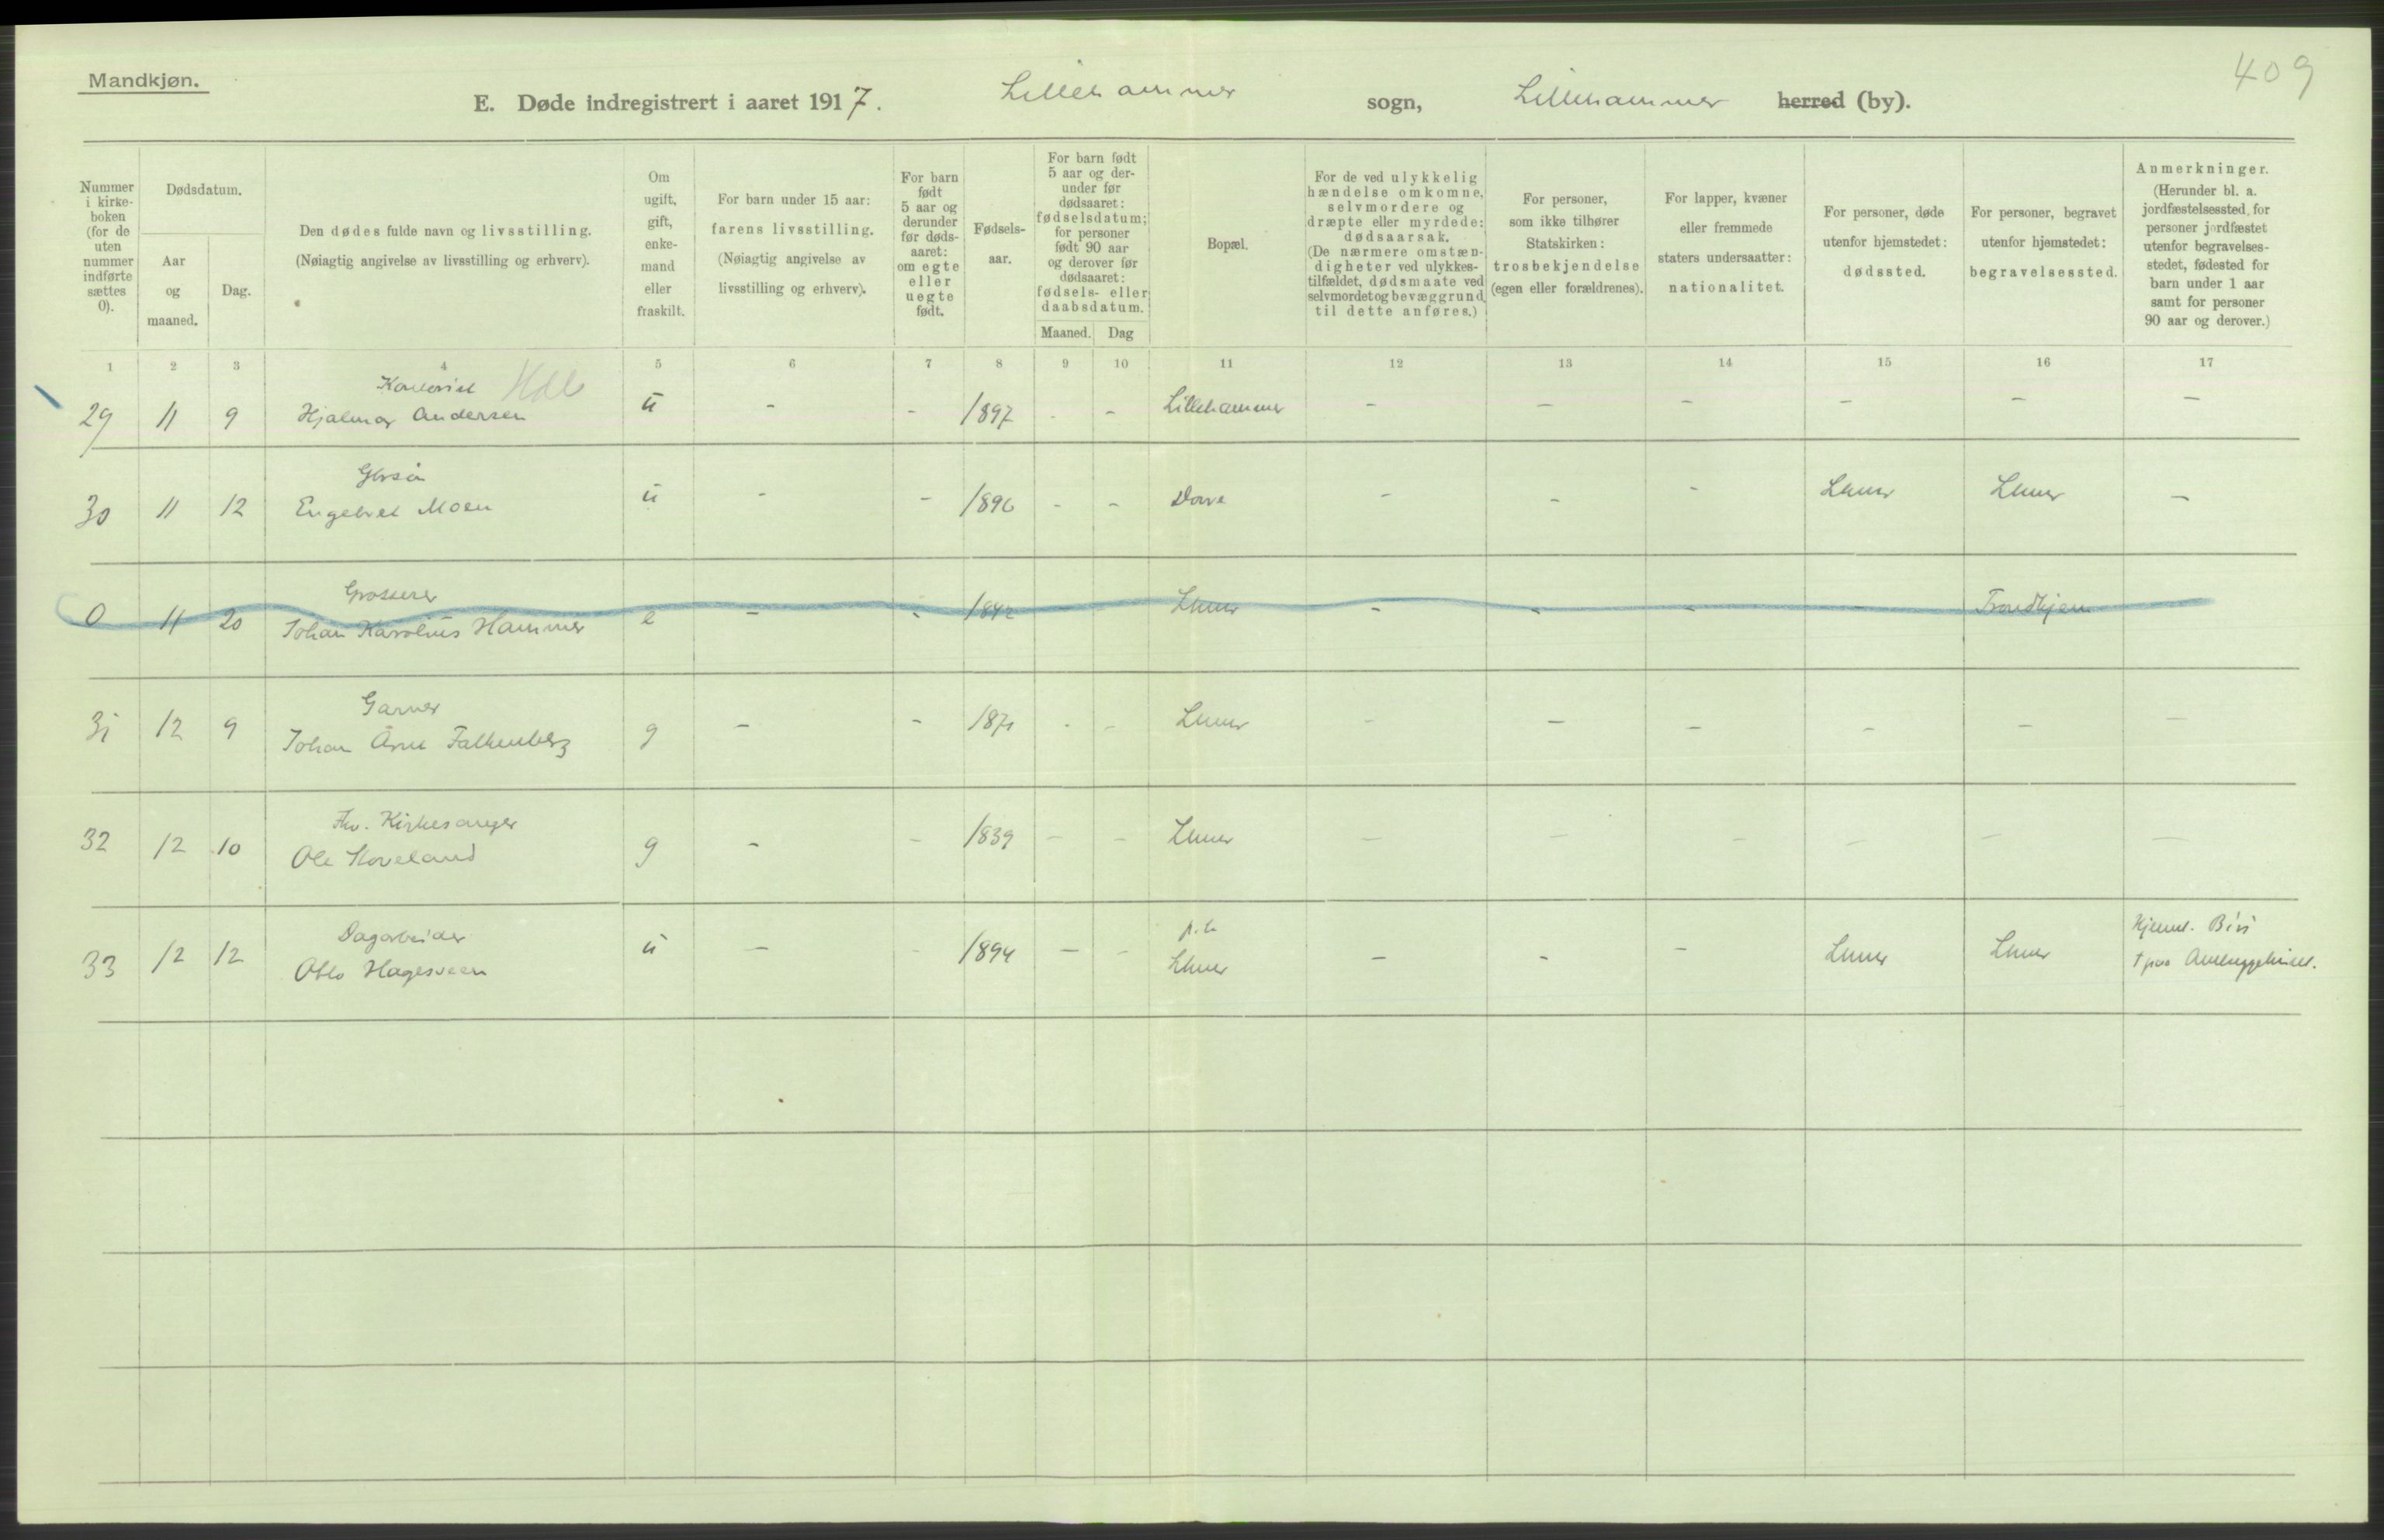 409
Mandkjøn.
E. Døde indregistrert i aaret 1917. Lillehammer sogn, Lillehammer herred (by).
Nummer i kirke-boken (for de uten nummer indførte sættes 0).
Dødsdatum.
Aar og maaned.
Dag.
Den dødes fulde navn og livsstilling.
(Nøiagtig angivelse av livsstilling og erhverv).
Om ugift, gift, enke-mand eller fraskilt.
For barn under 15 aar: farens livsstilling.
(Nøiagtig angivelse av livsstilling og erhverv).
For barn født 5 aar og derunder før døds-aaret: om egte eller uegte født.
Fødsels-aar.
For barn født 5 aar og der-under før dødsaaret: fødselsdatum; for personer født 90 aar og derover før dødsaaret: fødsels- eller daabsdatum.
Maaned. Dag
Bopæl.
For de ved ulykkelig hændelse omkomne, selvmordere og dræpte eller myrdede: dødsaarsak.
(De nærmere omstæn-digheter ved ulykkes-tilfældet, dødsmaate ved selvmordet og bevæggrund til dette anføres.)
For personer, som ikke tilhører Statskirken: trosbekjendelse (egen eller forældrenes).
For lapper, kvæner eller fremmede staters undersaatter: nationalitet.
For personer, døde utenfor hjemstedet: dødssted.
For personer, begravet utenfor hjemstedet: begravelsessted.
Anmerkninger.
(Herunder bl. a. jordfæstelsessted for personer jordfæstet utenfor begravelses-stedet, fødested for barn under 1 aar samt for personer 90 aar og derover.)
1 2 3 4 5 6 7 8 9 10 11 12 13 14 15 16 17
Kontorist
29 11 9 Hjalmar Andersen u - - 1897 - - Lillehammer - - - - - -
30 11 12 Engebret Moen u - - 1896 - - Dovre - - - Lhmr Lhmr -
Grosserer
0 11 20 Johan Karolius Hammer e - - 1842 - - Lhmr - - - - Trondhjem
Garver
31 12 9 Johan Arne Falkenberg g - - 1871 - - Lhmr - - - - - -
Fhv. Kirkesanger
32 12 10 Ole Hoveland g - - 1839 - - Lhmr - - - - - -
Dagarbeider
33 12 12 Otto Hagesveen u - - 1894 - - Lhmr - - - Lhmr Lhmr
Hjemst. Biri
† paa